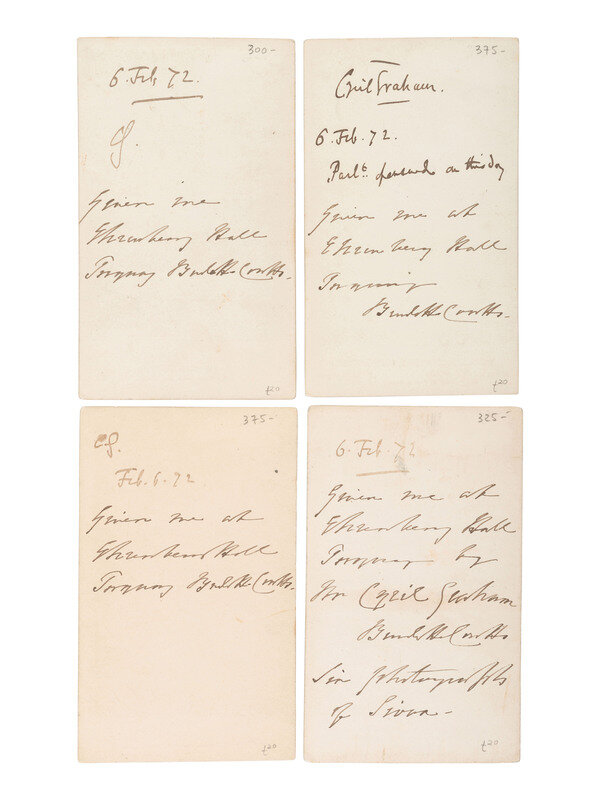 300-
6. Feb 72.
G.
Given me
Ehrenberg Hall
Torquay Burdett-Coutts.
£20
375-
Cyril Graham.
6. Feb. 72.
Parlt. opened on this day
Given me at
Ehrenberg Hall
Torquay
Burdett Coutts.
£20
375-
CG.
Feb. 6. 72
Given me at
Ehrenberg Hall
Torquay Burdett Coutts.
£20
325-
6. Feb. 72
Given me at
Ehrenberg Hall
Torquay by
Mr Cyril Graham
Burdett Coutts
Six photographs
of
£20